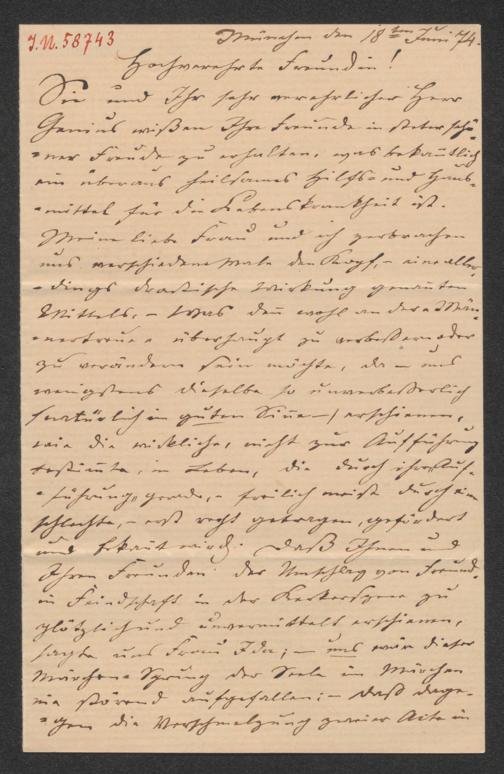 I.N. 58743
München den 18ten Juni 74.
Hochverehrte Freundin!
Sie und Ihr sehr verehrlicher Herr
Genius wißen Ihre Freunde in steter schö-
=ner Freude zu erhalten, was bekantlich
ein überaus heilsames Hilfs= und Haus-
=mittel für die Lebenskrankheit ist.
Meine liebe Frau und ich zerbrachen
uns verschiedene Male den Kopf, – eine aller-
=dings drastische Wirkung genanten
Mittels, – was den wohl an der "Män-
=nertreue" überhaupt zu verbeßern oder
zu verändern sein möchte, da – uns
wenigstens dieselbe so unverbeßerlich
(natürlich im guten Sinne –) erschienen,
wie die wirkliche, nicht zur Aufführung
bestimte, im Leben, die durch ihre "Auf-
=führung" gerade, – freilich meist durch eine
schlechte, – erst recht getragen, gefördert
und bekant wird. Daß Ihnen und
Ihren Freunden der Umschlag von Freund-
in Feindschaft in der Kerkerscene zu
plötzlich und unvermittelt erschienen,
sagte uns Frau Ida; – uns wär dieser
Märchen=Sprung der Seele im Märchen
nie störend aufgefallen; – daß dage-
=gen die Verschmelzung zweier Acte in